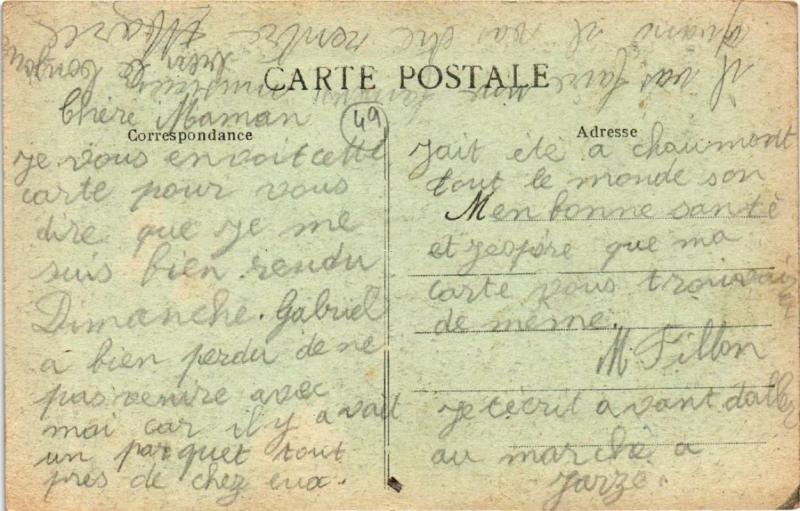 CARTE POSTALE
Correspondance
49
Adresse
Chère Maman
Je vous envoit cette
carte pour vous
dire que je me
suis bien rendu
Dimanche. Gabriel
a bien perdu de ne
pas venire avec
moi car il y avait
un parquet tout
près de chez eux.
Jait étè a chaumont
tout le monde son
en bonne santè
et jespère que ma
carte vous trouvais
de même.
M Fillon
Je técrit avant daller
au marchè a
Jarzé.
il vas faire
quand il vas être rentré